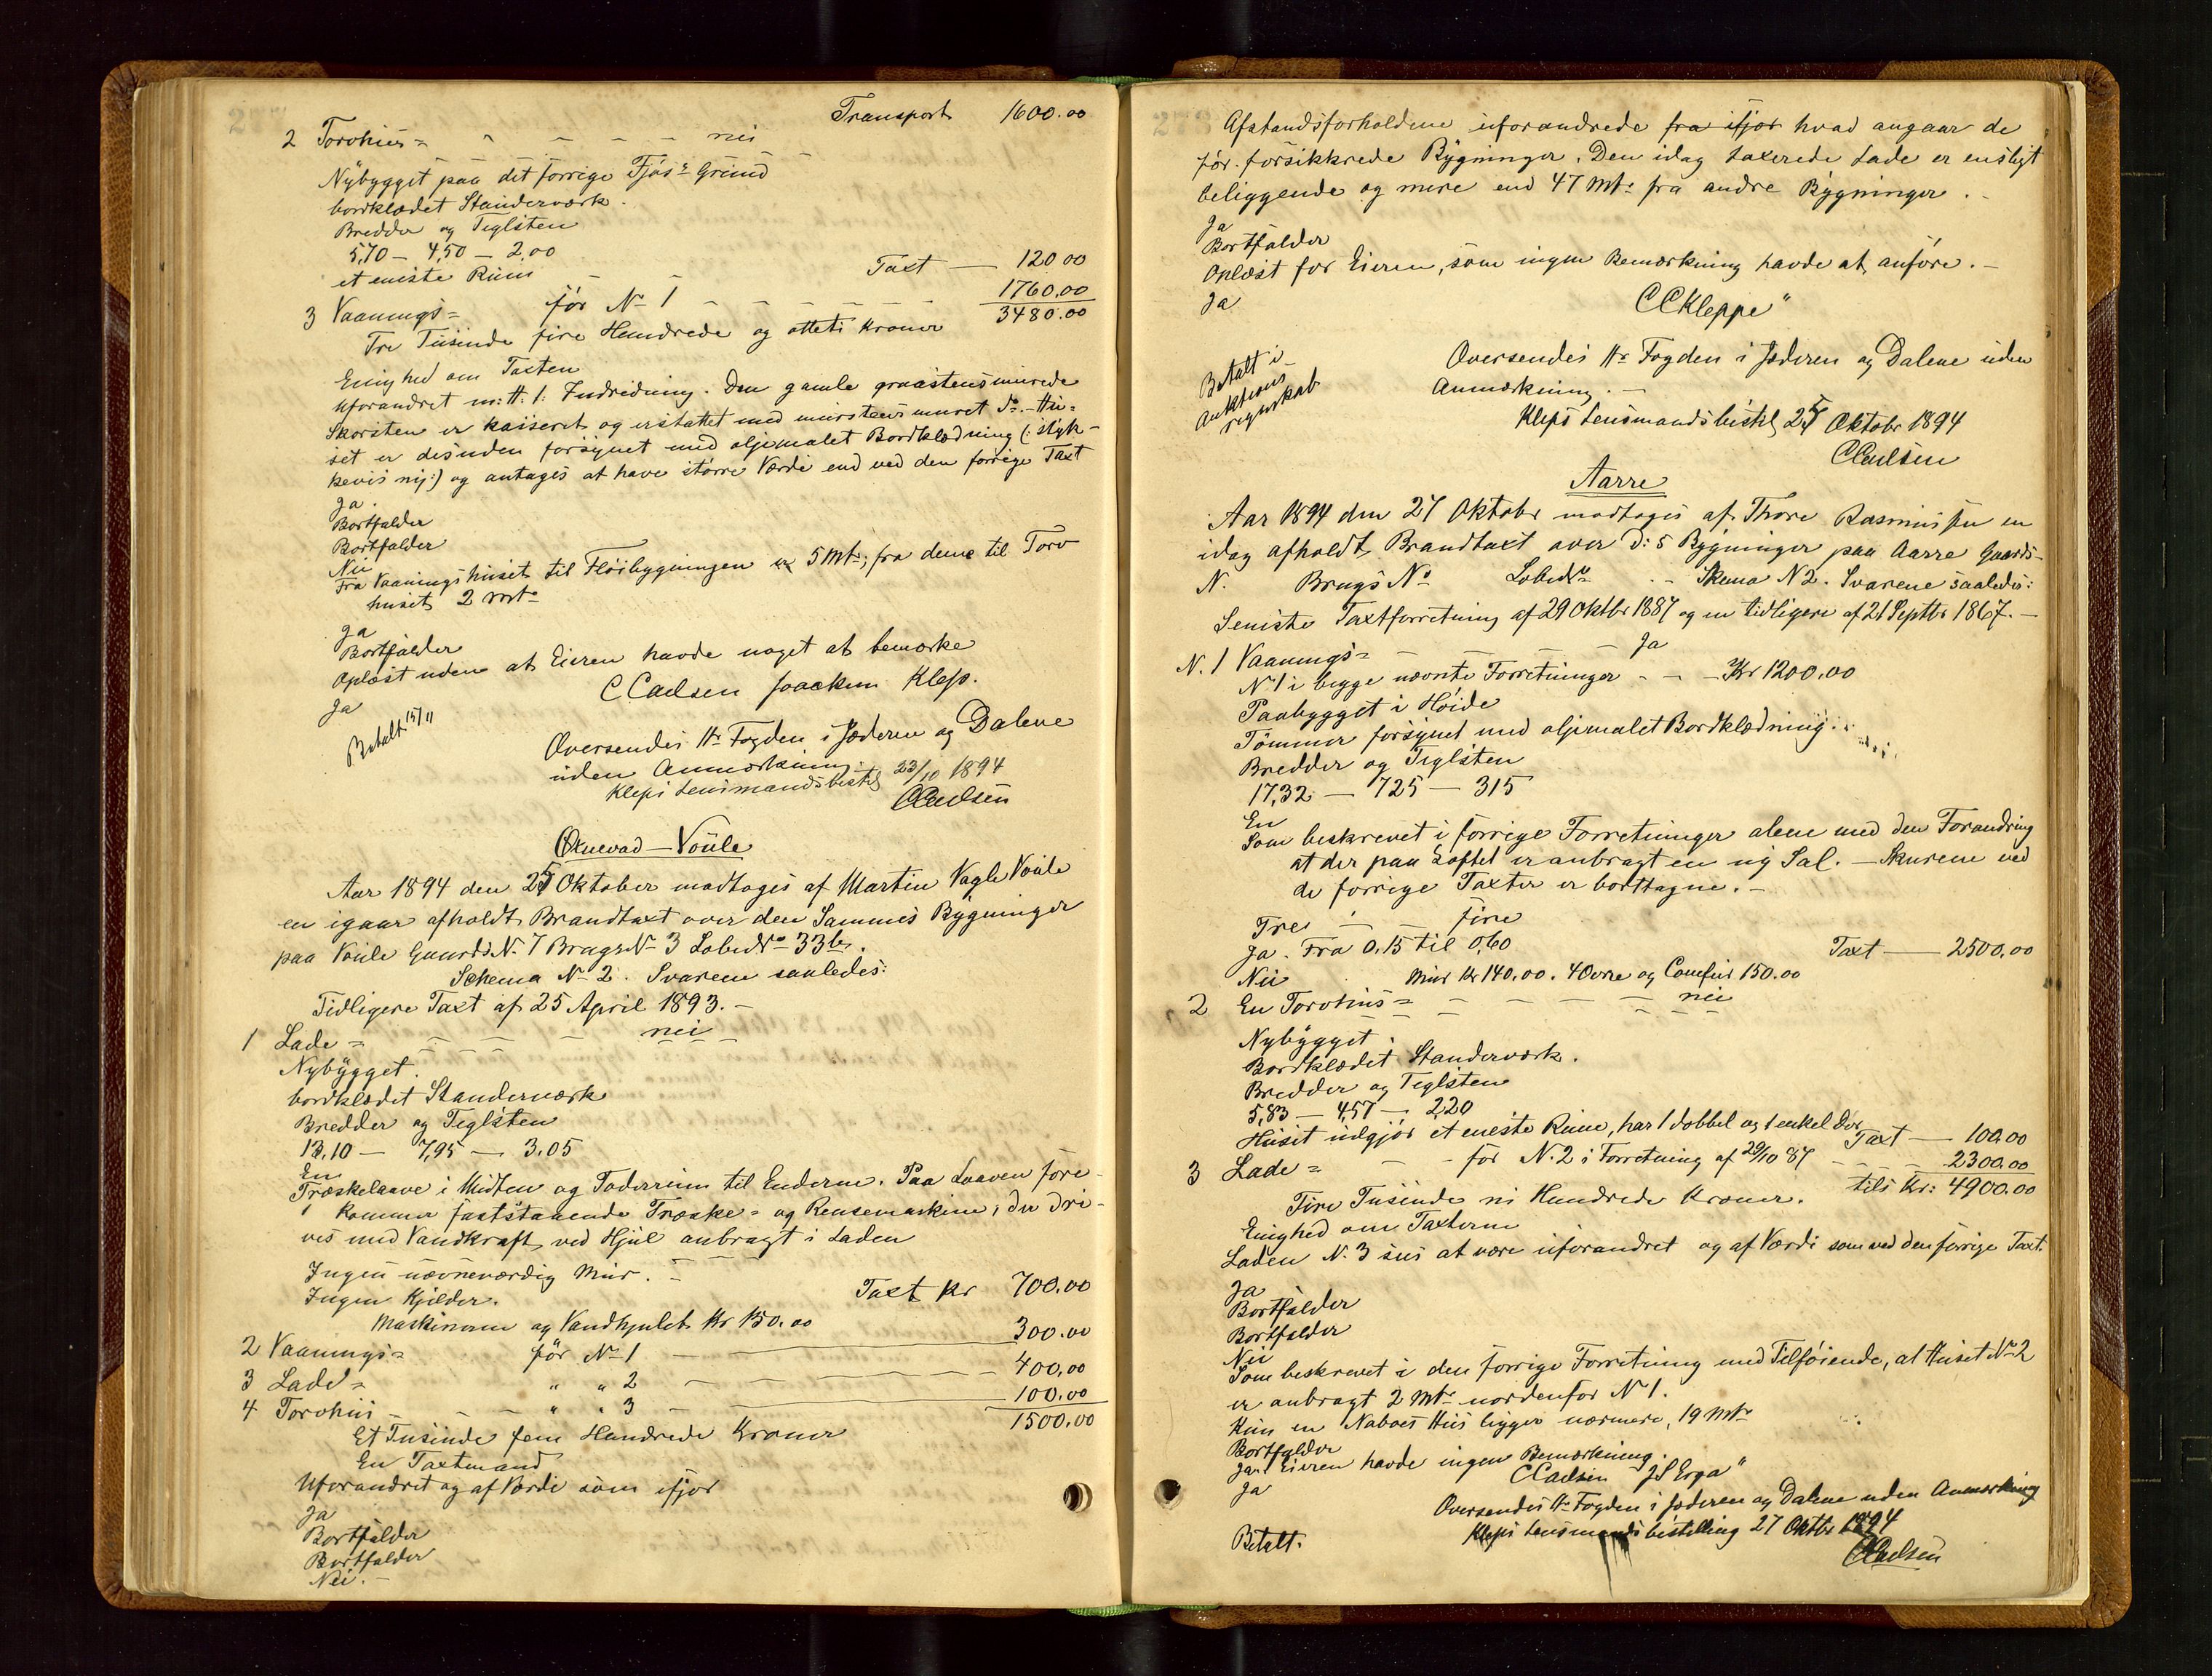 Transport 1600.00
2 Torvhus = " - - - - nei
Nybygget paa det forrige Fjøs's Grund
bordklædet Standerværk.
Bredder og Teglsten
5,70 - 4,50 - 2,00
et eneste Rum Taxt - 120 00
3 Vaanings= før No 1 - - - - - 1760,00
Tre Tusinde fire Hundrede og otteti Kroner 3480.00
Enighed om Taxten
Uforandret m: H. t. Indredning. Den gamle graastensmurede
Skorsten er kasseret og erstattet med murstens muret Do. - Hu=
set er desuden forsynet med oljemalet Bordklædning (: styk-
kevis ny:) og antages at have større Værdi end ved den forrige Taxt
Ja.
Bortfalder
Bortfalder
Nei
Fra Vaaningshuset til Fløibygningen er 5 Mtr, fra denne til Torv
huset 2 Mtr
Ja
Bortfalder
Oplæst uden at Eieren havde noget at bemærke
Ja C Carlsen Joackim Klep.
Betalt 15/11
Oversendes Hr Fogden i Jæderen og Dalene
uden Anmærkning.
Kleps Lensmandsbestil 23/10 1894
CCarlsen
Øxnevad - Voule
Aar 1894 den 25 Oktober modtoges af Martin Vagle Voule
en igaar afholdt Brandtaxt over den Sammes Bygninger
paa Voule Gaards N. 7 Brugs No 3 LøbeNo 33b.
Schema No 2. Svarene saaledes:
Tidligere Taxt af 25 April 1893. -
1 Lade = - - - nei - -
Nybygget.
bordklædet Standerværk
Bredder og Teglsten
13,10 - 7,95 - 3.05
En
Træskelaave i Midten og Foderrum til Enderne. Paa Laaven fore-
kommer faststaaende Træske- og Rensemaskine, der dri-
ves med Vandkraft ved Hjul anbragt i Laden
Ingen nævneværdig Mur. -
Ingen Kjelder. Taxt Kr 700.00
Maskinerne og Vandhjulet Kr 150.00
2 Vaanings= før No 1 - 300.00
3 Lade = " " 2 - - - 400,00
4 Torvhus - - " " 3 - 100.00
Et Tusinde fem Hundrede Kroner 1500.00
En Taxtmand
Uforandret og af Værdi som ifjor
Ja
Bortfalder
Bortfalder
Nei. -
Afstandsforholdene uforandrede fra ifjor hvad angaar de
før forsikkrede Bygninger. Den idag taxerede Lade er ensligt
beliggende og mere end 47 Mtr fra andre Bygninger.
Ja
Bortfalder
Oplæst for Eieren, som ingen Bemærkning havde at anføre. -
Ja
CCKleppe"
Betalt i
Auktions
regnskab
Oversendes Hr Fogden i Jæderen og Dalene uden
Anmærkning. -
Kleps Lensmandsbestil 25 Oktobr 1894
CCarlsen
Aarre
Aar 1894 den 27 Oktobr modtoges af Thore Rasmussen en
idag afholdt Brandtaxt over D: s Bygninger paa Aarre Gaards-
N. Brugs No LøbeNo - - Skema N 2. Svarene saaledes:
Seneste Taxtforretning af 29 Oktbr 1887 og en tidligere af 21 Septbr 1867. -
N. 1 Vaanings= - - - - Ja
No 1 i begge nævnte Forretninger - - - Kr 1200.00
Paabygget i Høide
Tømmer forsynet med oljemalet Bordklædning.
Bredder og Teglsten
17,32 - 725 - 315
En
Som beskrevet i forrige Forretninger alene med den Forandring
at der paa Loftet er anbragt en ny Sal. - Skurene ved
de forrige Taxter er borttagne. -
Tre - - fire
Ja. Fra 0.15 til 0,60 Taxt - 2500,00
Nei Mur Kr 140,00. 4 Ovne og Comfur 150.00
2 En Torvhus = - - - - nei
Nybygget.
Bordklædet Standerværk.
Bredder og Teglsten
5,83 - 4,57 - 2,20
Huset udgjør et eneste Rum, har 1 dobbel og 1 enkel Dør Taxt - 100.00
3 Lade = - - før N. 2 i Forretning af 29/10 87 - - - 2300.00
Fire Tusinde ni Hundrede Kroner. tils Kr: 4900.00
Enighed om Taxterne
Laden N. 3 sees at være uforandret og af Værdi som ved den forrige Taxt.
Ja
Bortfalder
Bortfalder
Nei
Som beskrevet i den forrige Forretning med Tilføiende, at Huset No 2
er anbragt 2 Mtr nordenfor N 1.
Kun en Naboes Hus ligger nærmere, 19 Mtr
Bortfalder
Ja. Eieren havde ingen Bemærkning.
Ja CCarlsen J S Erga"
Oversendes Hr Fogden i Jæderen og Dalene uden Anmærkning
Kleps Lensmands bestilling 27 Oktbr 1894
Betalt. CCarlsen